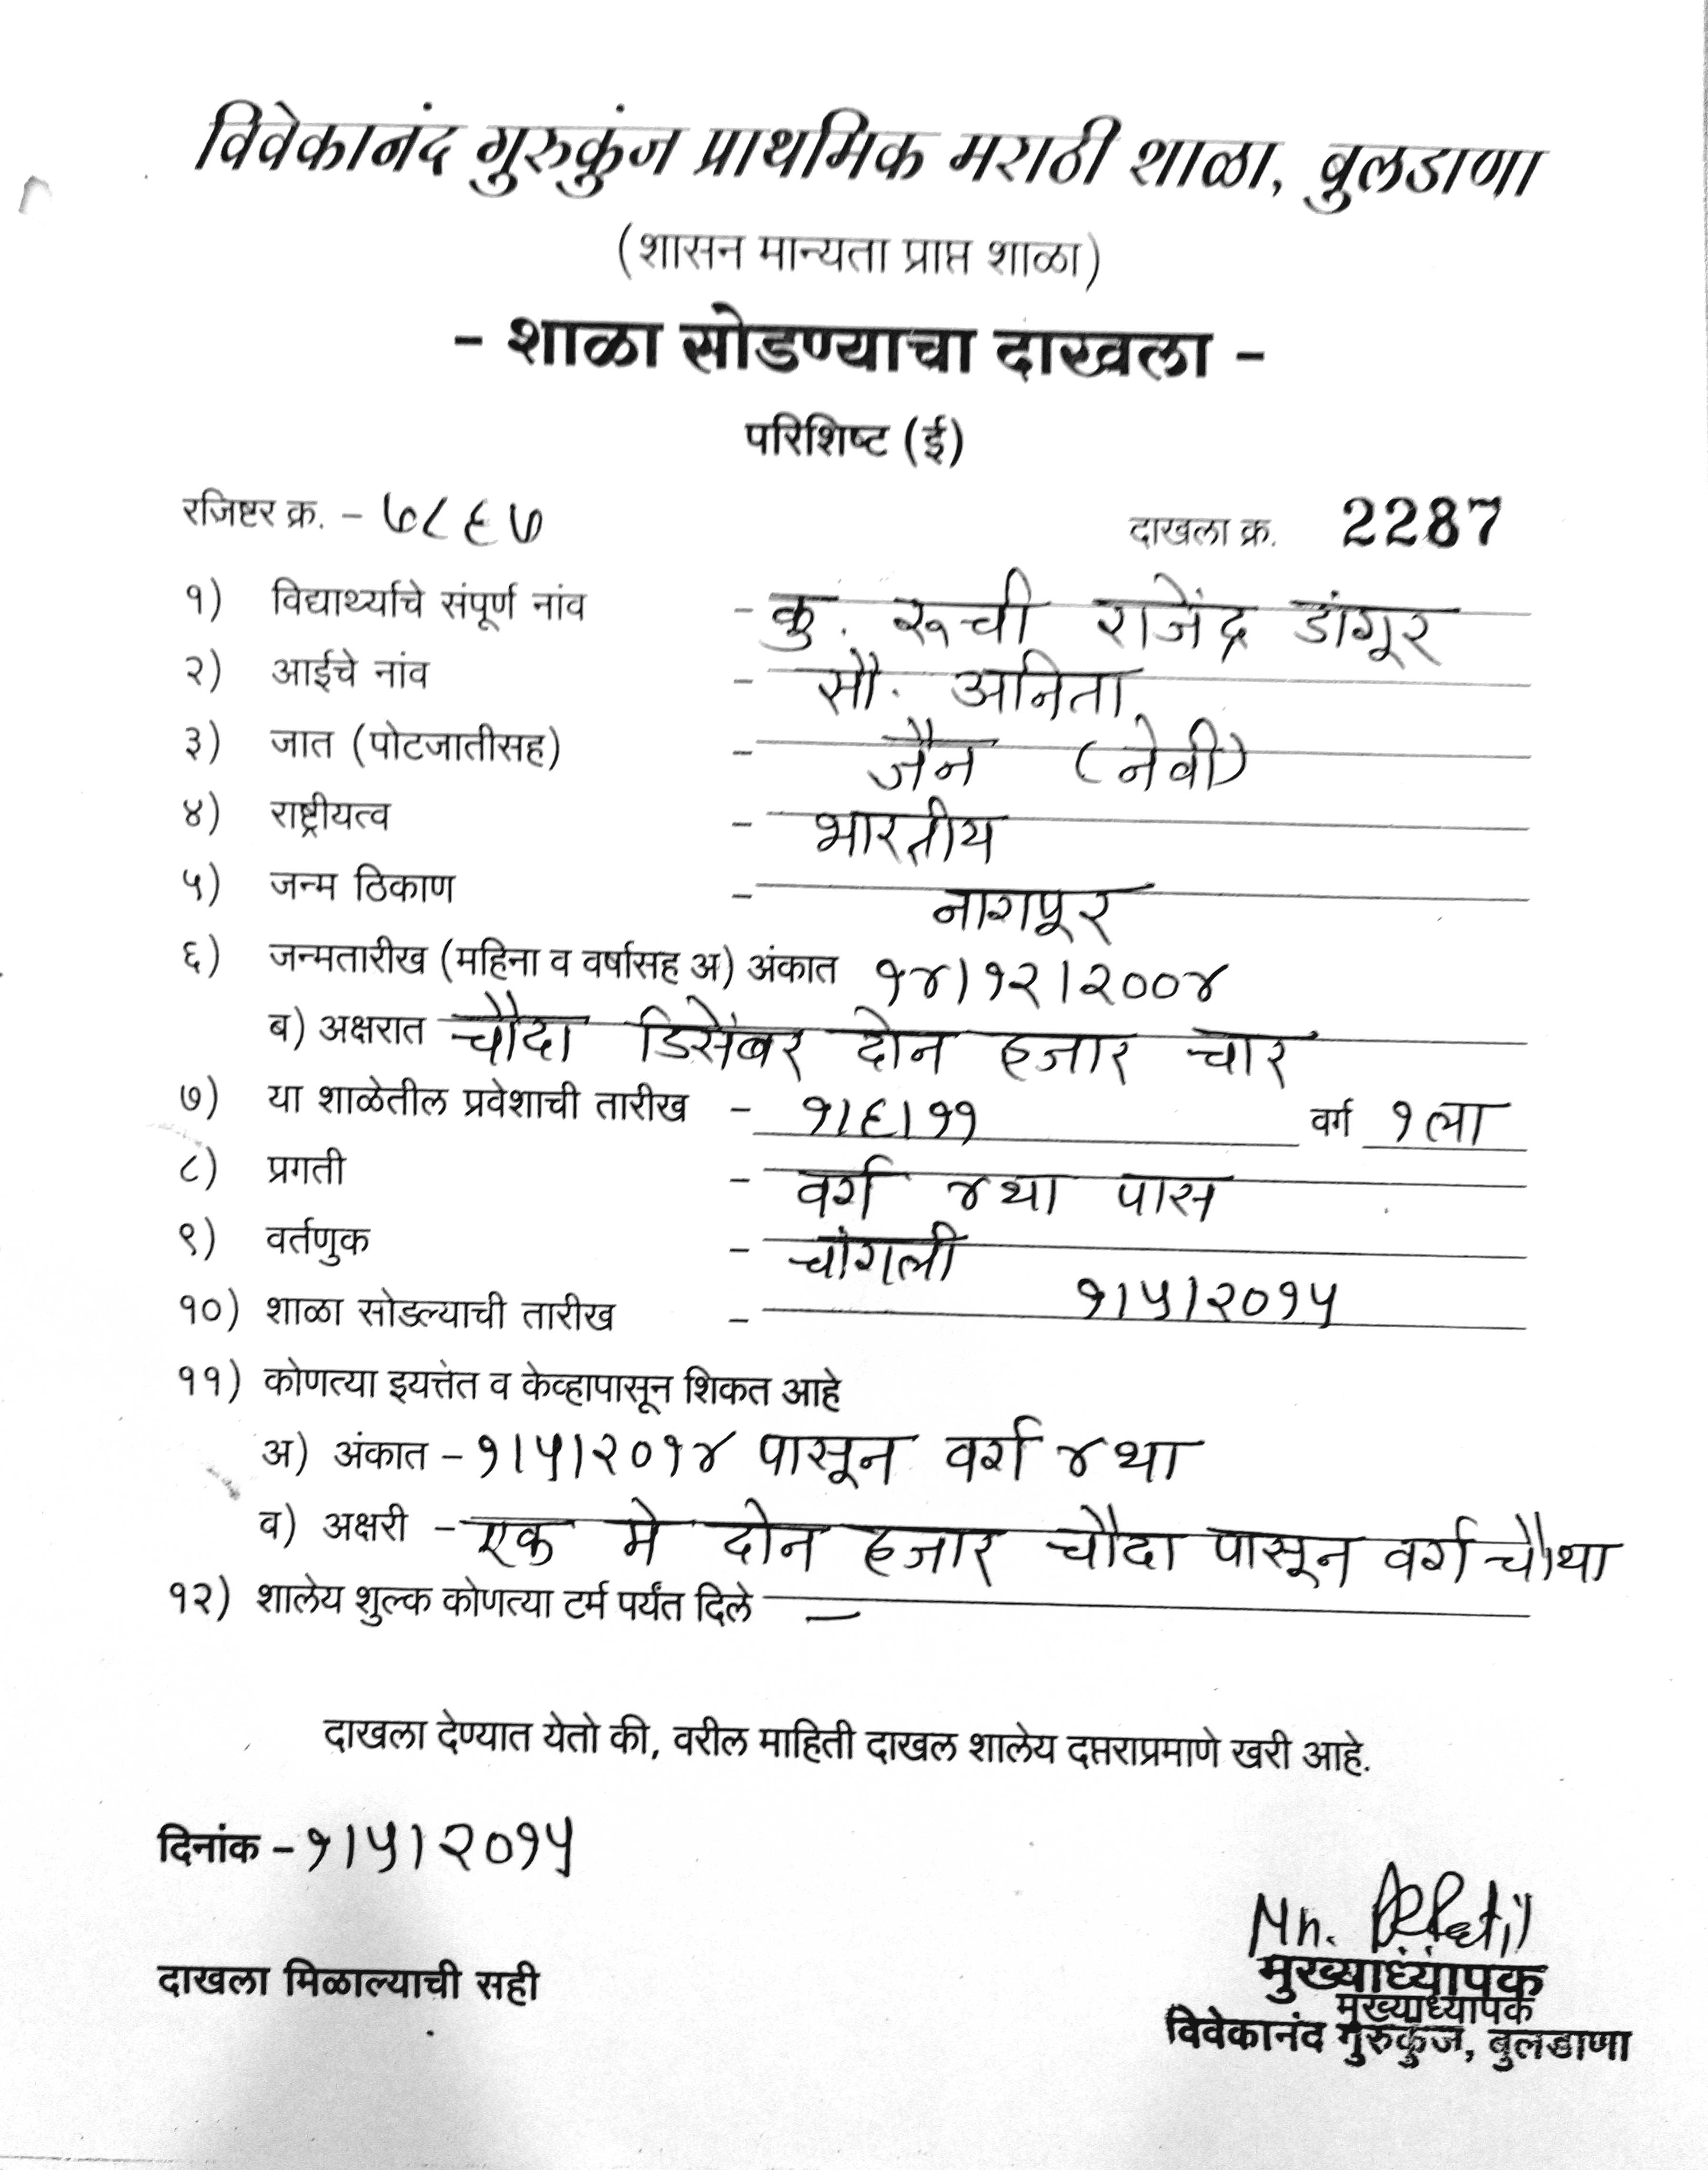 विवेकानंद गुरुकुंज प्राथमिक मराठी शाळा, बुलडाणा
(शासन मान्यता प्राप्त शाळा)
- शाळा सोडण्याचा दाखला -
परिशिष्ट (ई)
रजिष्टर क्र. - ७८६७ दाखला क्र. 2287
१) विद्यार्थ्याचे संपूर्ण नांव - कु. रूची राजेंद्र डांगूर
२) आईचे नांव - सौ. अनिता
३) जात (पोटजातीसह) - जैन (नेवी)
४) राष्ट्रीयत्व - भारतीय
५) जन्म ठिकाण - नागपूर
६) जन्मतारीख (महिना व वर्षासह अ) अंकात १४/१२/२००४
ब) अक्षरात चौदा डिसेंबर दोन हजार चार
७) या शाळेतील प्रवेशाची तारीख - १/६/११ वर्ग १ला
८) प्रगती - वर्ग ४था पास
९) वर्तणुक - चांगली
१०) शाळा सोडल्याची तारीख - १/५/२०१५
११) कोणत्या इयत्तेत व केव्हापासून शिकत आहे
अ) अंकात - १/५/२०१४ पासून वर्ग ४था
व) अक्षरी - एक मे दोन हजार चौदा पासून वर्ग चौथा
१२) शालेय शुल्क कोणत्या टर्म पर्यंत दिले —
दाखला देण्यात येतो की, वरील माहिती दाखल शालेय दप्तराप्रमाणे खरी आहे.
दिनांक - १/५/२०१५
दाखला मिळाल्याची सही
मुख्याध्यापक
मुख्याध्यापक
विवेकानंद गुरुकुंज, बुलडाणा